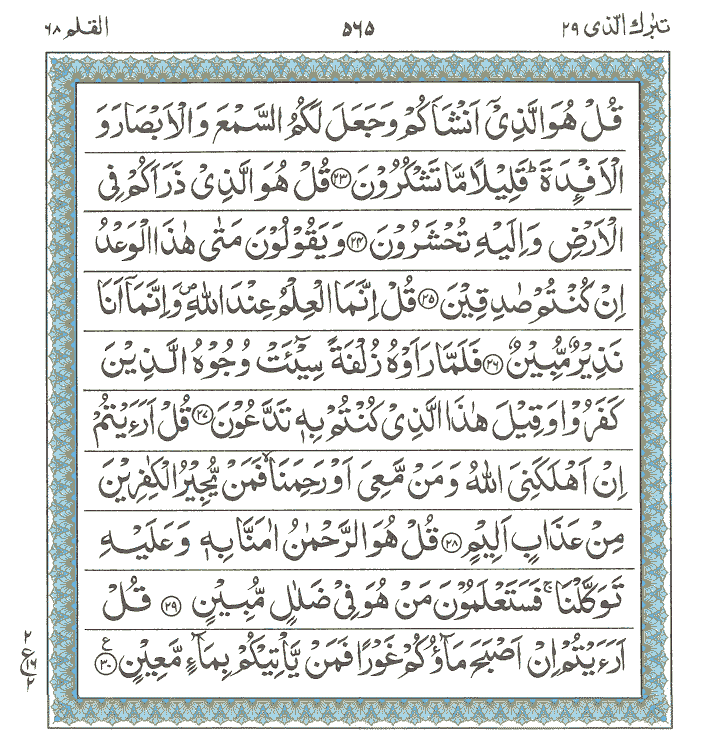 تبٰرك الّذى ٢٩ ٥٦٥ القلم ٦٨
قُلْ هُوَ الَّذِىْٓ اَنْشَاَكُمْ وَجَعَلَ لَكُمُ السَّمْعَ وَالْاَبْصَارَ وَ
الْاَفْـِٕدَةَ ؕ قَلِيْلًا مَّا تَشْكُرُوْنَ ﴿٢٣﴾ قُلْ هُوَ الَّذِىْ ذَرَاَكُمْ فِى
الْاَرْضِ وَاِلَيْهِ تُحْشَرُوْنَ ﴿٢٤﴾ وَيَقُوْلُوْنَ مَتٰى هٰذَا الْوَعْدُ
اِنْ كُنْتُمْ صٰدِقِيْنَ ﴿٢٥﴾ قُلْ اِنَّمَا الْعِلْمُ عِنْدَ اللّٰهِ ۪ وَاِنَّمَاۤ اَنَا
نَذِيْرٌ مُّبِيْنٌ ﴿٢٦﴾ فَلَمَّا رَاَوْهُ زُلْفَةً سِيْٓـَٔتْ وُجُوْهُ الَّذِيْنَ
كَفَرُوْا وَقِيْلَ هٰذَا الَّذِىْ كُنْتُمْ بِهٖ تَدَّعُوْنَ ﴿٢٧﴾ قُلْ اَرَءَيْتُمْ
اِنْ اَهْلَكَنِىَ اللّٰهُ وَمَنْ مَّعِىَ اَوْ رَحِمَنَا ۙ فَمَنْ يُّجِيْرُ الْكٰفِرِيْنَ
مِنْ عَذَابٍ اَلِيْمٍ ﴿٢٨﴾ قُلْ هُوَ الرَّحْمٰنُ اٰمَنَّا بِهٖ وَعَلَيْهِ
تَوَكَّلْنَا ۚ فَسَتَعْلَمُوْنَ مَنْ هُوَ فِىْ ضَلٰلٍ مُّبِيْنٍ ﴿٢٩﴾ قُلْ
اَرَءَيْتُمْ اِنْ اَصْبَحَ مَآؤُكُمْ غَوْرًا فَمَنْ يَّاْتِيْكُمْ بِمَآءٍ مَّعِيْنٍ ﴿٣٠﴾ ع
٢
ع
١٦
٢